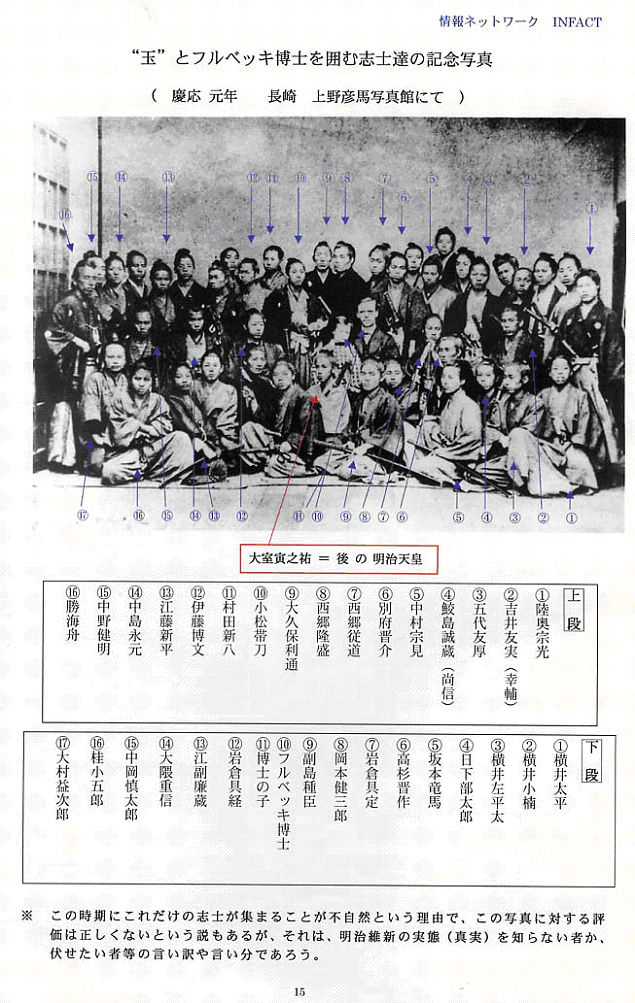 情報ネットワーク INFACT
“玉”とフルベッキ博士を囲む志士達の記念写真
( 慶応 元年 長崎 上野彦馬写真館にて )
⑯ ⑮ ⑭ ⑬ ⑫ ⑪ ⑩ ⑨ ⑧ ⑦ ⑥ ⑤ ④ ③ ② ①
⑰ ⑯ ⑮ ⑭ ⑬ ⑫ ⑪ ⑩ ⑨ ⑧ ⑦ ⑥ ⑤ ④ ③ ② ①
大室寅之祐 = 後 の 明治天皇
上段
①陸奥宗光
②吉井友実(幸輔)
③五代友厚
④鮫島誠蔵(尚信)
⑤中村宗見
⑥別府晋介
⑦西郷従道
⑧西郷隆盛
⑨大久保利通
⑩小松帯刀
⑪村田新八
⑫伊藤博文
⑬江藤新平
⑭中島永元
⑮中野健明
⑯勝海舟
下段
①横井太平
②横井小楠
③横井左平太
④日下部太郎
⑤坂本竜馬
⑥高杉晋作
⑦岩倉具定
⑧岡本健三郎
⑨副島種臣
⑩フルベッキ博士
⑪博士の子
⑫岩倉具経
⑬江副廉蔵
⑭大隈重信
⑮中岡慎太郎
⑯桂小五郎
⑰大村益次郎
※ この時期にこれだけの志士が集まることが不自然という理由で、この写真に対する評
価は正しくないという説もあるが、それは、明治維新の実態(真実)を知らない者か、
伏せたい者等の言い訳や言い分であろう。
15